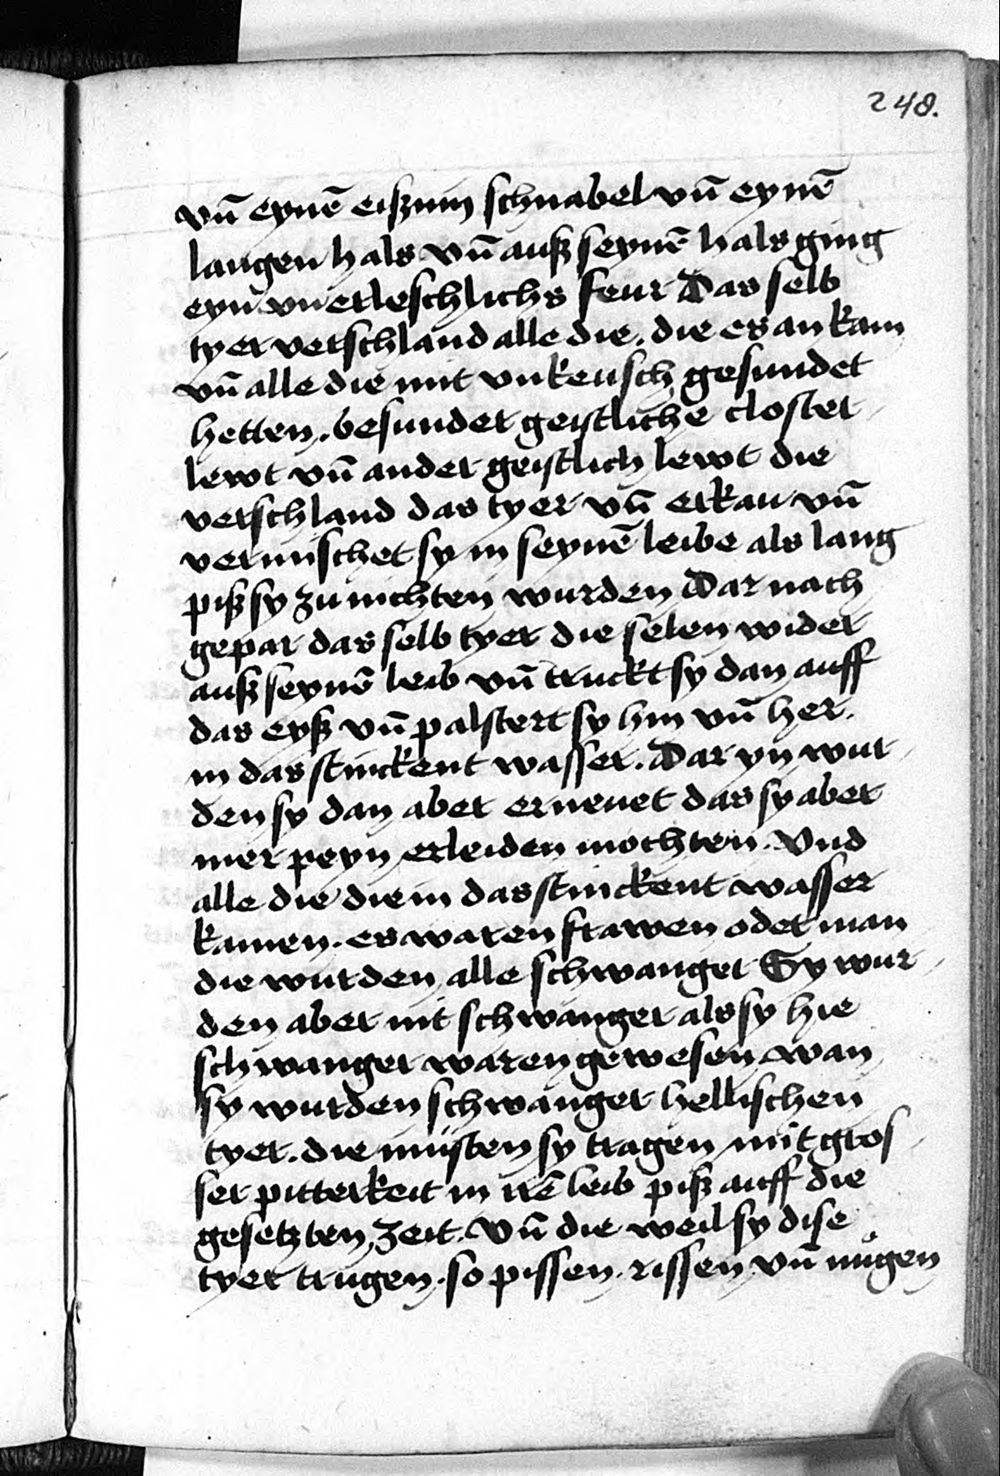 248.
vn̄ eynē eißnin schnabel vn̄ eynē
langen hals vn̄ auß seynē hals ging
eyn vnerleschlichs feur Das selb
tyer verschland alle die . die es an kam
vn̄ alle die mit vnkeusch gesundet
hetten . besunder geistliche closter
lewt vn̄ ander geistlich lewt die
verschland das tyer vn̄ erkau vn̄
vermischet sy in seynē leibe als lang
piß sy zu nichten wurden Dar nach
gepar das selb tyer die selen wider
auß seynē leib vn̄ truckt sy dan auff
das eyß vn̄ palstert sy hin vn̄ her .
in das stinckent wasser . Dar yn wur
den sy dan aber erneuet das sy aber
mer peyn erleiden mochten . Vnd
alle die die in das stinckent wasser
kamen . es waren frawen oder man
die wurden alle schwanger Sy wur
den aber nit schwanger als sy hie
schwanger waren gewesen wan
sy wurden schwanger hellischen
tyer . die musten sy tragen mit gros
ser pitterkeit in irē leib piß auff die
gesetzten zeit . Vn̄ die weil sy dise
tyer trugen . so pissen . rissen vn̄ nůgen